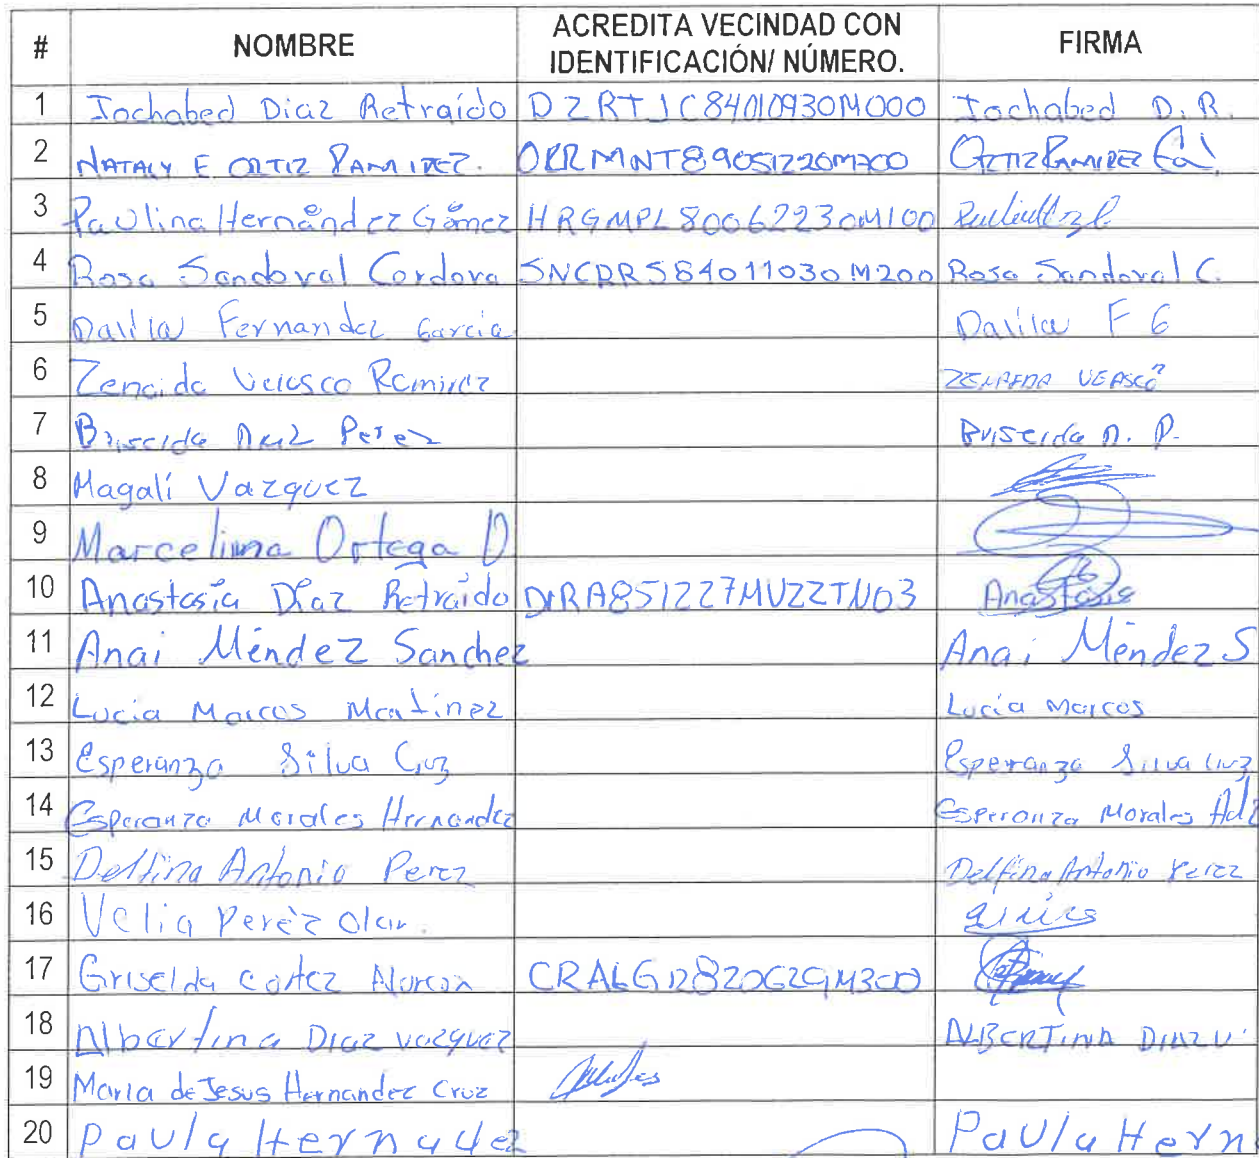 # NOMBRE ACREDITA VECINDAD CON IDENTIFICACIÓN/ NÚMERO. FIRMA
1 Jochabed Diaz Retraído DZRTJC84010930M000 Jochabed D. R.
2 NATALY E ORTIZ RAMIREZ. ORRMNT89051220M700 ORTIZ RAMIREZ
3 Paulina Hernández Gómez HRGMPL80062230M100
4 Rosa Sandoval Cordova SNCDRS84011030M200 Rosa Sandoval C.
5 Dalila Fernandez Garcia Dalila F G
6 Zenaida Velasco Ramirez ZENAIDA VEASCO
7 Briseida Perez Briseida P.
8 Magalí Vazquez
9 Marcelina Ortega D
10 Anastasia Díaz Retraido DIRA851227MVZZTN03 Anastasia
11 Anai Méndez Sanchez Anai Méndez S
12 Lucia Marcos Martinez Lucía Marcos
13 Esperanza Silva Cruz Esperanza Silva Cruz
14 Esperanza Morales Hernandez Esperanza Morales Hdz
15 Delfina Antonio Perez Delfina Antonio Perez
16 Velia Peréz Olan.
17 Griselda Cortez Alarcon
18 Albertina Diaz vazquez ALBERTINA DIAZ V
19 Maria de Jesus Hernandez Cruz
20 Paula Hernadez Paula Hern